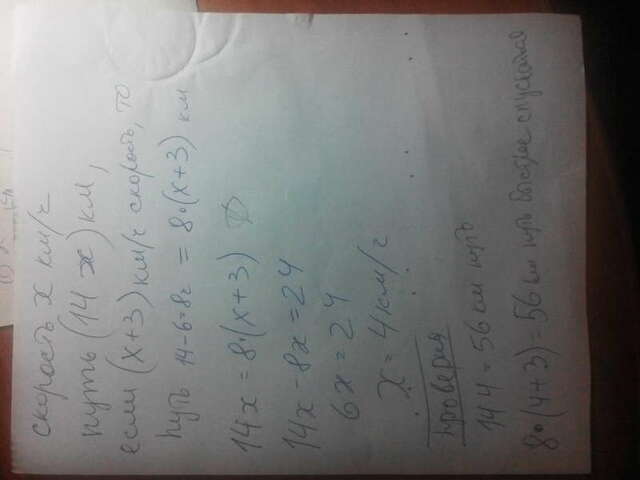 скорость x км/ч
путь (14 x) км,
если (x+3) км/ч скорость, то
путь 14-6=8ч = 8·(x+3) км
14x = 8·(x+3)
14x - 8x = 24
6x = 24
x = 4 км/ч
проверка
14 4 = 56 км путь
8·(4+3) = 56 км путь быстрее